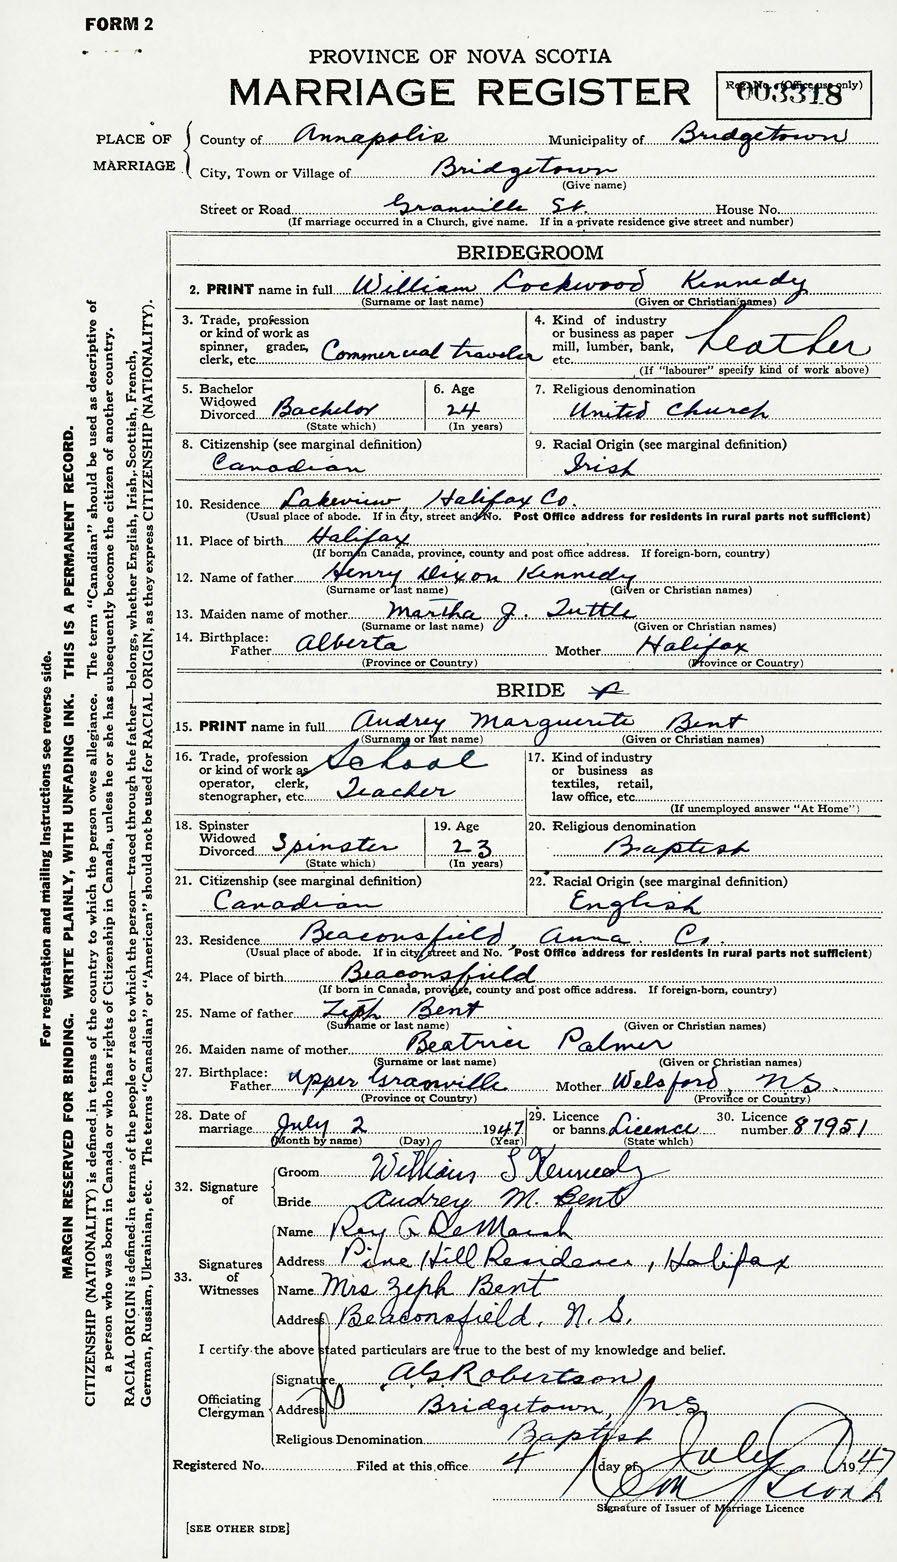 FORM 2
PROVINCE OF NOVA SCOTIA
MARRIAGE REGISTER
Reg. No. (Office use only)
003318
PLACE OF MARRIAGE
County of Annapolis Municipality of Bridgetown
City, Town or Village of Bridgetown
(Give name)
Street or Road Granville St. House No.
(If marriage occurred in a Church, give name. If in a private residence give street and number)
BRIDEGROOM
2. PRINT name in full William Lockwood Kennedy
(Surname or last name) (Given or Christian names)
3. Trade, profession or kind of work as spinner, grader, clerk, etc. Commercial traveler
4. Kind of industry or business as paper mill, lumber, bank, etc. Leather
(If "labourer" specify kind of work above)
5. Bachelor Widowed Divorced Bachelor
(State which)
6. Age 24
(In years)
7. Religious denomination
United Church
8. Citizenship (see marginal definition)
Canadian
9. Racial Origin (see marginal definition)
Irish
10. Residence Lakeview, Halifax Co.
(Usual place of abode. If in city, street and No. Post Office address for residents in rural parts not sufficient)
11. Place of birth Halifax
(If born in Canada, province, county and post office address. If foreign-born, country)
12. Name of father Henry Dixon Kennedy
(Surname or last name) (Given or Christian names)
13. Maiden name of mother Martha J. Tuttle
(Surname or last name) (Given or Christian names)
14. Birthplace: Father Alberta Mother Halifax
(Province or Country) (Province or Country)
BRIDE
15. PRINT name in full Audrey Marguerite Bent
(Surname or last name) (Given or Christian names)
16. Trade, profession or kind of work as operator, clerk, stenographer, etc. School Teacher
17. Kind of industry or business as textiles, retail, law office, etc.
(If unemployed answer "At Home")
18. Spinster Widowed Divorced Spinster
(State which)
19. Age 23
(In years)
20. Religious denomination
Baptist
21. Citizenship (see marginal definition)
Canadian
22. Racial Origin (see marginal definition)
English
23. Residence Beaconsfield, Anna. Co.
(Usual place of abode. If in city street and No. Post Office address for residents in rural parts not sufficient)
24. Place of birth Beaconsfield
(If born in Canada, province, county and post office address. If foreign-born, country)
25. Name of father Zeph Bent
(Surname or last name) (Given or Christian names)
26. Maiden name of mother Beatrice Palmer
(Surname or last name) (Given or Christian names)
27. Birthplace: Father Upper Granville Mother Welsford, N.S.
(Province or Country) (Province or Country)
28. Date of marriage July 2 1947
(Month by name) (Day) (Year)
29. Licence or banns Licence
(State which)
30. Licence number 87951
32. Signature of
Groom William L Kennedy
Bride Audrey M. Bent
33. Signatures of Witnesses
Name Roy G DeMarsh
Address Pine Hill Residence, Halifax
Name Mrs Zeph Bent
Address Beaconsfield, N.S.
I certify the above stated particulars are true to the best of my knowledge and belief.
Officiating Clergyman
Signature AG Robertson
Address Bridgetown, N.S.
Religious Denomination Baptist
Registered No. Filed at this office 4 day of July 1947
Signature of Issuer of Marriage Licence
[SEE OTHER SIDE]
For registration and mailing instructions see reverse side.
MARGIN RESERVED FOR BINDING. WRITE PLAINLY, WITH UNFADING INK. THIS IS A PERMANENT RECORD.
CITIZENSHIP (NATIONALITY) is defined in terms of the country to which the person owes allegiance. The term "Canadian" should be used as descriptive of
a person who was born in Canada or who has rights of Citizenship in Canada, unless he or she has subsequently become the citizen of another country.
RACIAL ORIGIN is defined in terms of the people or race to which the person—traced through the father—belongs, whether English, Irish, Scottish, French,
German, Russian, Ukrainian, etc. The terms "Canadian" or "American" should not be used for RACIAL ORIGIN, as they express CITIZENSHIP (NATIONALITY).